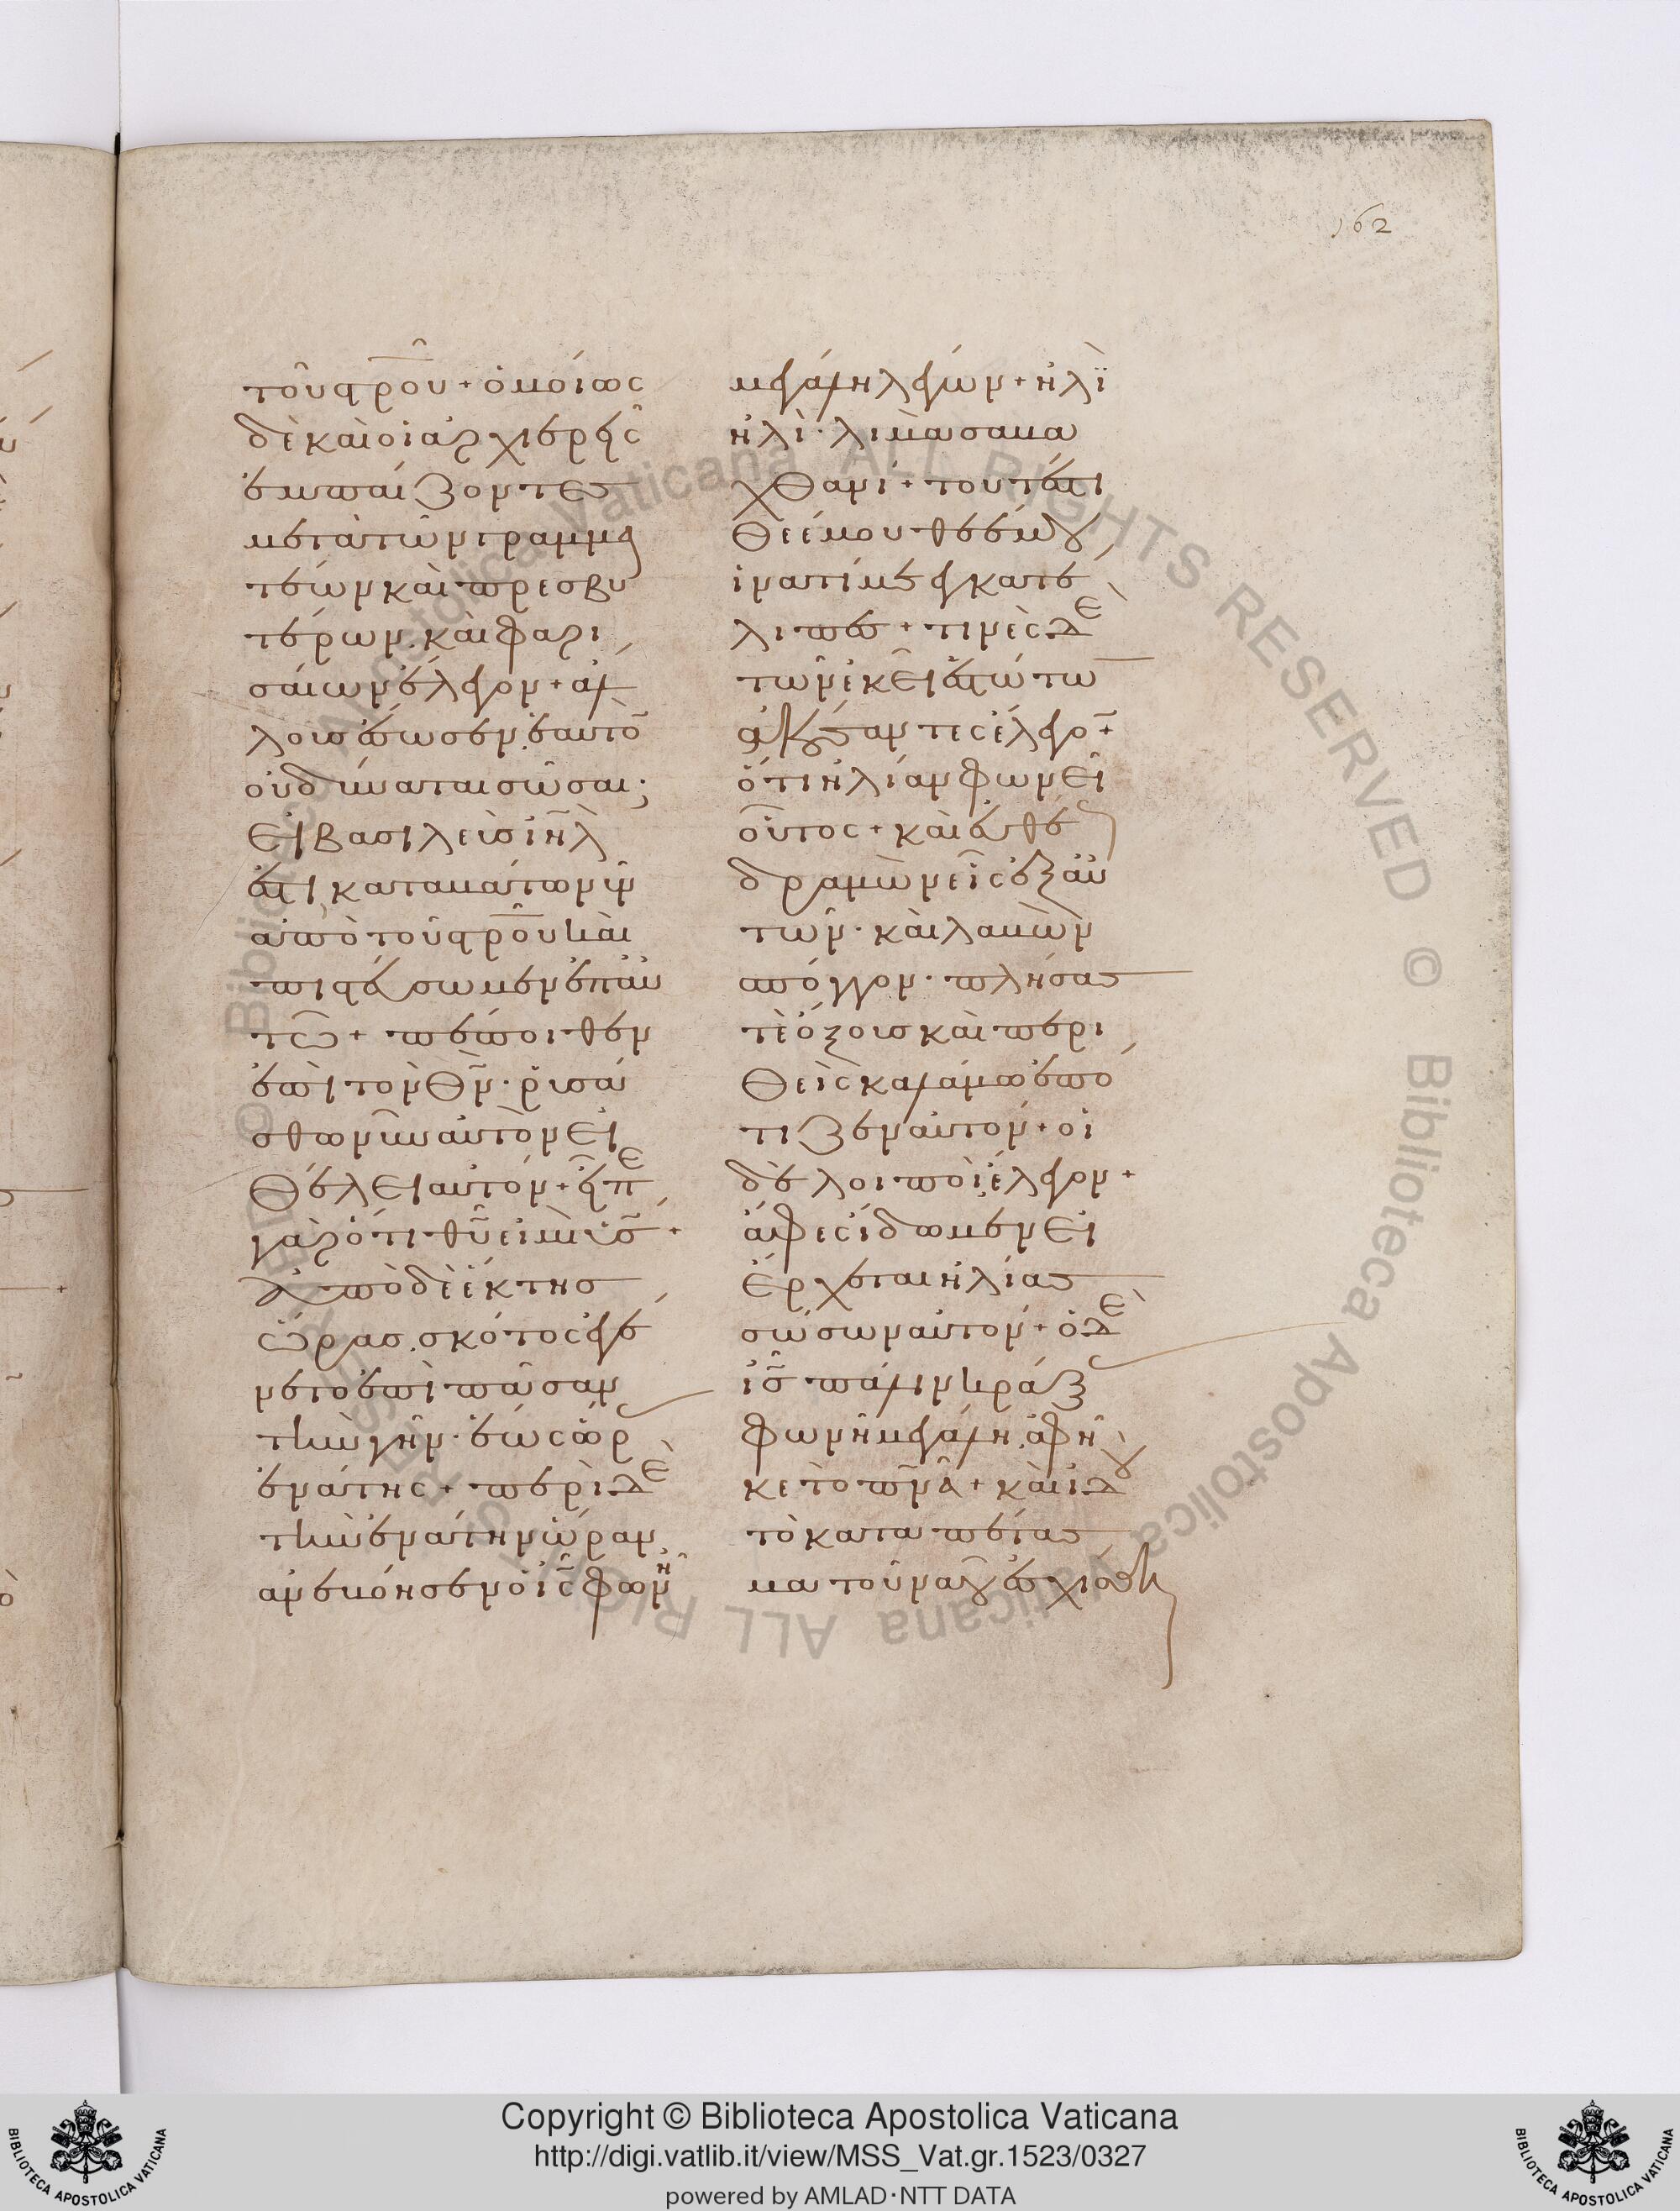 162
τοῦ σρου + ὁμοίως
δὲ καὶ οἱ ἀρχιερεῖς
ἐμπαίζοντες
μετὰ τῶν γραμμα
τέων καὶ πρεσβυ
τέρων. καὶ φαρι
σαίων ἔλεγον + ἄλ
λους ἔσωσεν. ἑαυτὸ
οὐ δύναται σῶσαι;
εἰ βασιλεὺς ιηλ
ἐστι καταβάτω νῦν
ἀπὸ τοῦ σρου καὶ
πιστεύσωμεν ἐπ αὐ
τῶ + πέποιθεν
ἐπὶ τὸν θν. ῥυσά
σθω νῦν αὐτὸν εἰ
θέλει αὐτόν + εἶπε
γὰρ ὅτι θυ εἰμὶ υς +
ἀπὸ δὲ ἕκτης
ὥρας. σκότος ἐγέ
νετο ἐπὶ πᾶσαν
τὴν γῆν. ἕως ὥρ
ἐνάτης + περὶ δὲ
τὴν ἐνάτην ὥραν
ἀνεβόησεν ὁ ις φωνῆ
μεγάλη λέγων + ἠλὶ
ἠλὶ. λιμὰ σαβα
χθανί + τουτέστι
θεέ μου θεέ μου
ἱνατί με ἐγκατέ
λιπες + τινὲς δὲ
τῶν ἐκεῖ ἑστώτω
ἀκούσαντες ἔλεγο +
ὅτι ἠλίαν φωνεῖ
οὗτος + καὶ εὐθέ
δραμὼν εἷς ἐξ αὐ
τῶν. καὶ λαβὼν
σπόγγον. πλήσας
τὲ ὄξους καὶ περι
θεὶς καλάμω ἐπό
τιζεν αὐτόν + οἱ
δὲ λοιποὶ ἔλεγον +
ἄφες ἴδωμεν εἰ
ἔρχεται ἠλίας
σώσων αὐτόν + ὁ δὲ
ις πάλιν κράξ
φωνῆ μεγάλη. ἀφῆ
κε τὸ πνα + καὶ ἰδοὺ
τὸ καταπέτας
μα τοῦ ναοῦ ἐσχίσθη
Copyright © Biblioteca Apostolica Vaticana
http://digi.vatlib.it/view/MSS_Vat.gr.1523/0327
powered by AMLAD·NTT DATA
BIBLIOTECA APOSTOLICA VATICANA
BIBLIOTECA APOSTOLICA VATICANA
© Biblioteca Apostolica Vaticana ALL RIGHTS RESERVED © Biblioteca Apostolica Vaticana ALL RIGHTS RESERVED